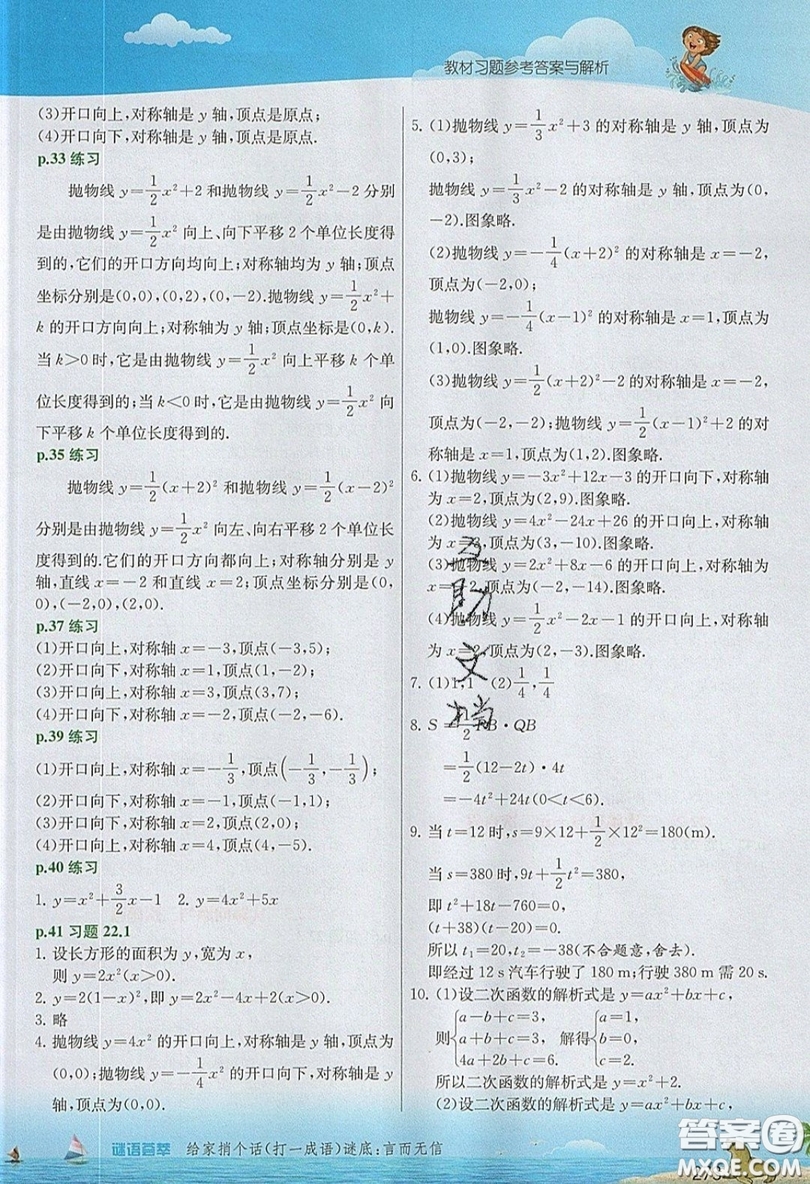 教材习题参考答案与解析
(3)开口向上,对称轴是 y 轴,顶点是原点;
(4)开口向下,对称轴是 y 轴,顶点是原点.
p.33 练习
抛物线 y=1/2x²+2 和抛物线 y=1/2x²-2 分别
是由抛物线 y=1/2x² 向上、向下平移 2 个单位长度得
到的,它们的开口方向均向上;对称轴均为 y 轴;顶点
坐标分别是(0,0),(0,2),(0,-2).抛物线 y=1/2x²+
k 的开口方向向上;对称轴为 y 轴;顶点坐标是(0,k).
当 k>0 时,它是由抛物线 y=1/2x² 向上平移 k 个单
位长度得到的;当 k<0 时,它是由抛物线 y=1/2x² 向
下平移 k 个单位长度得到的.
p.35 练习
抛物线 y=1/2(x+2)² 和抛物线 y=1/2(x-2)²
分别是由抛物线 y=1/2x² 向左、向右平移 2 个单位长
度得到的.它们的开口方向都向上;对称轴分别是 y
轴,直线 x=-2 和直线 x=2;顶点坐标分别是(0,
0),(-2,0),(2,0).
p.37 练习
(1)开口向上,对称轴 x=-3,顶点(-3,5);
(2)开口向下,对称轴 x=1,顶点(1,-2);
(3)开口向上,对称轴 x=3,顶点(3,7);
(4)开口向下,对称轴 x=-2,顶点(-2,-6).
p.39 练习
(1)开口向上,对称轴 x=-1/3,顶点(-1/3,-1/3);
(2)开口向下,对称轴 x=-1,顶点(-1,1);
(3)开口向下,对称轴 x=2,顶点(2,0);
(4)开口向上,对称轴 x=4,顶点(4,-5).
p.40 练习
1. y=x²+3/2x-1 2. y=4x²+5x
p.41 习题 22.1
1. 设长方形的面积为 y,宽为 x,
则 y=2x²(x>0).
2. y=2(1-x)²,即 y=2x²-4x+2(x>0).
3. 略
4. 抛物线 y=4x² 的开口向上,对称轴是 y 轴,顶点为
(0,0);抛物线 y=-1/4x² 的开口向下,对称轴是 y
轴,顶点为(0,0).
5. (1)抛物线 y=1/3x²+3 的对称轴是 y 轴,顶点为
(0,3);
抛物线 y=1/3x²-2 的对称轴是 y 轴,顶点为(0,
-2).图象略.
(2)抛物线 y=-1/4(x+2)² 的对称轴是 x=-2,
顶点为(-2,0);
抛物线 y=-1/4(x-1)² 的对称轴是 x=1,顶点为
(1,0).图象略.
(3)抛物线 y=1/2(x+2)²-2 的对称轴是 x=-2,
顶点为(-2,-2);抛物线 y=1/2(x-1)²+2 的对
称轴是 x=1,顶点为(1,2).图象略.
6. (1)抛物线 y=-3x²+12x-3 的开口向下,对称轴
为 x=2,顶点为(2,9).图象略.
(2)抛物线 y=4x²-24x+26 的开口向上,对称轴
为 x=3,顶点为(3,-10).图象略.
(3)抛物线 y=2x²+8x-6 的开口向上,对称轴为
x=,顶点为(-2,-14).图象略.
(4)抛物线 y=1/2x²-2x-1 的开口向上,对称轴
为 x=,顶点为(2,-3).图象略.
互助文档
7. (1)1,1 (2)1/4,1/4
8. S=1/2PB·QB
=1/2(12-2t)·4t
=-4t²+24t(0<t<6).
9. 当 t=12 时,s=9×12+1/2×12²=180(m).
当 s=380 时,9t+1/2t²=380,
即 t²+18t-760=0,
(t+38)(t-20)=0.
所以 t₁=20,t₂=-38(不合题意,舍去).
即经过 12 s 汽车行驶了 180 m;行驶 380 m 需 20 s.
10. (1)设二次函数的解析式是 y=ax²+bx+c,
则{a-b+c=3, a+b+c=3, 4a+2b+c=6. 解得{a=1, b=0, c=2.
所以二次函数的解析式是 y=x²+2.
(2)设二次函数的解析式是 y=ax²+bx+c,
谜语荟萃 给家捎个话(打一成语)谜底:言而无信
答案圈
MXQE.COM